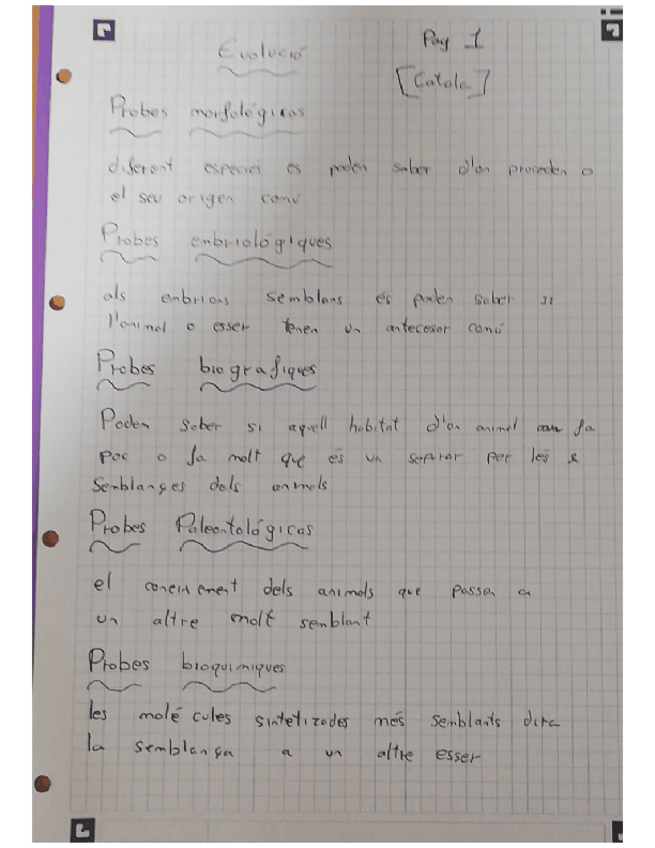 Evolució
Pag 1
[Catala]
Probes morfológicas
diferent especies es poden saber d'on proceden o
el seu origen comú
Probes embriológiques
als embrions semblans es poden saber si
l'animal o esser tenen un antecesor comú
Probes biografiques
Poden saber si aquell habitat d'un animal fa
poc o fa molt que és va separar per les
semblançes dels animals
Probes Paleontológicas
el coneixement dels animals que passen a
un altre molt semblant
Probes bioquimiques
les molécules sintetizades més semblants dira
la semblança a un altre esser